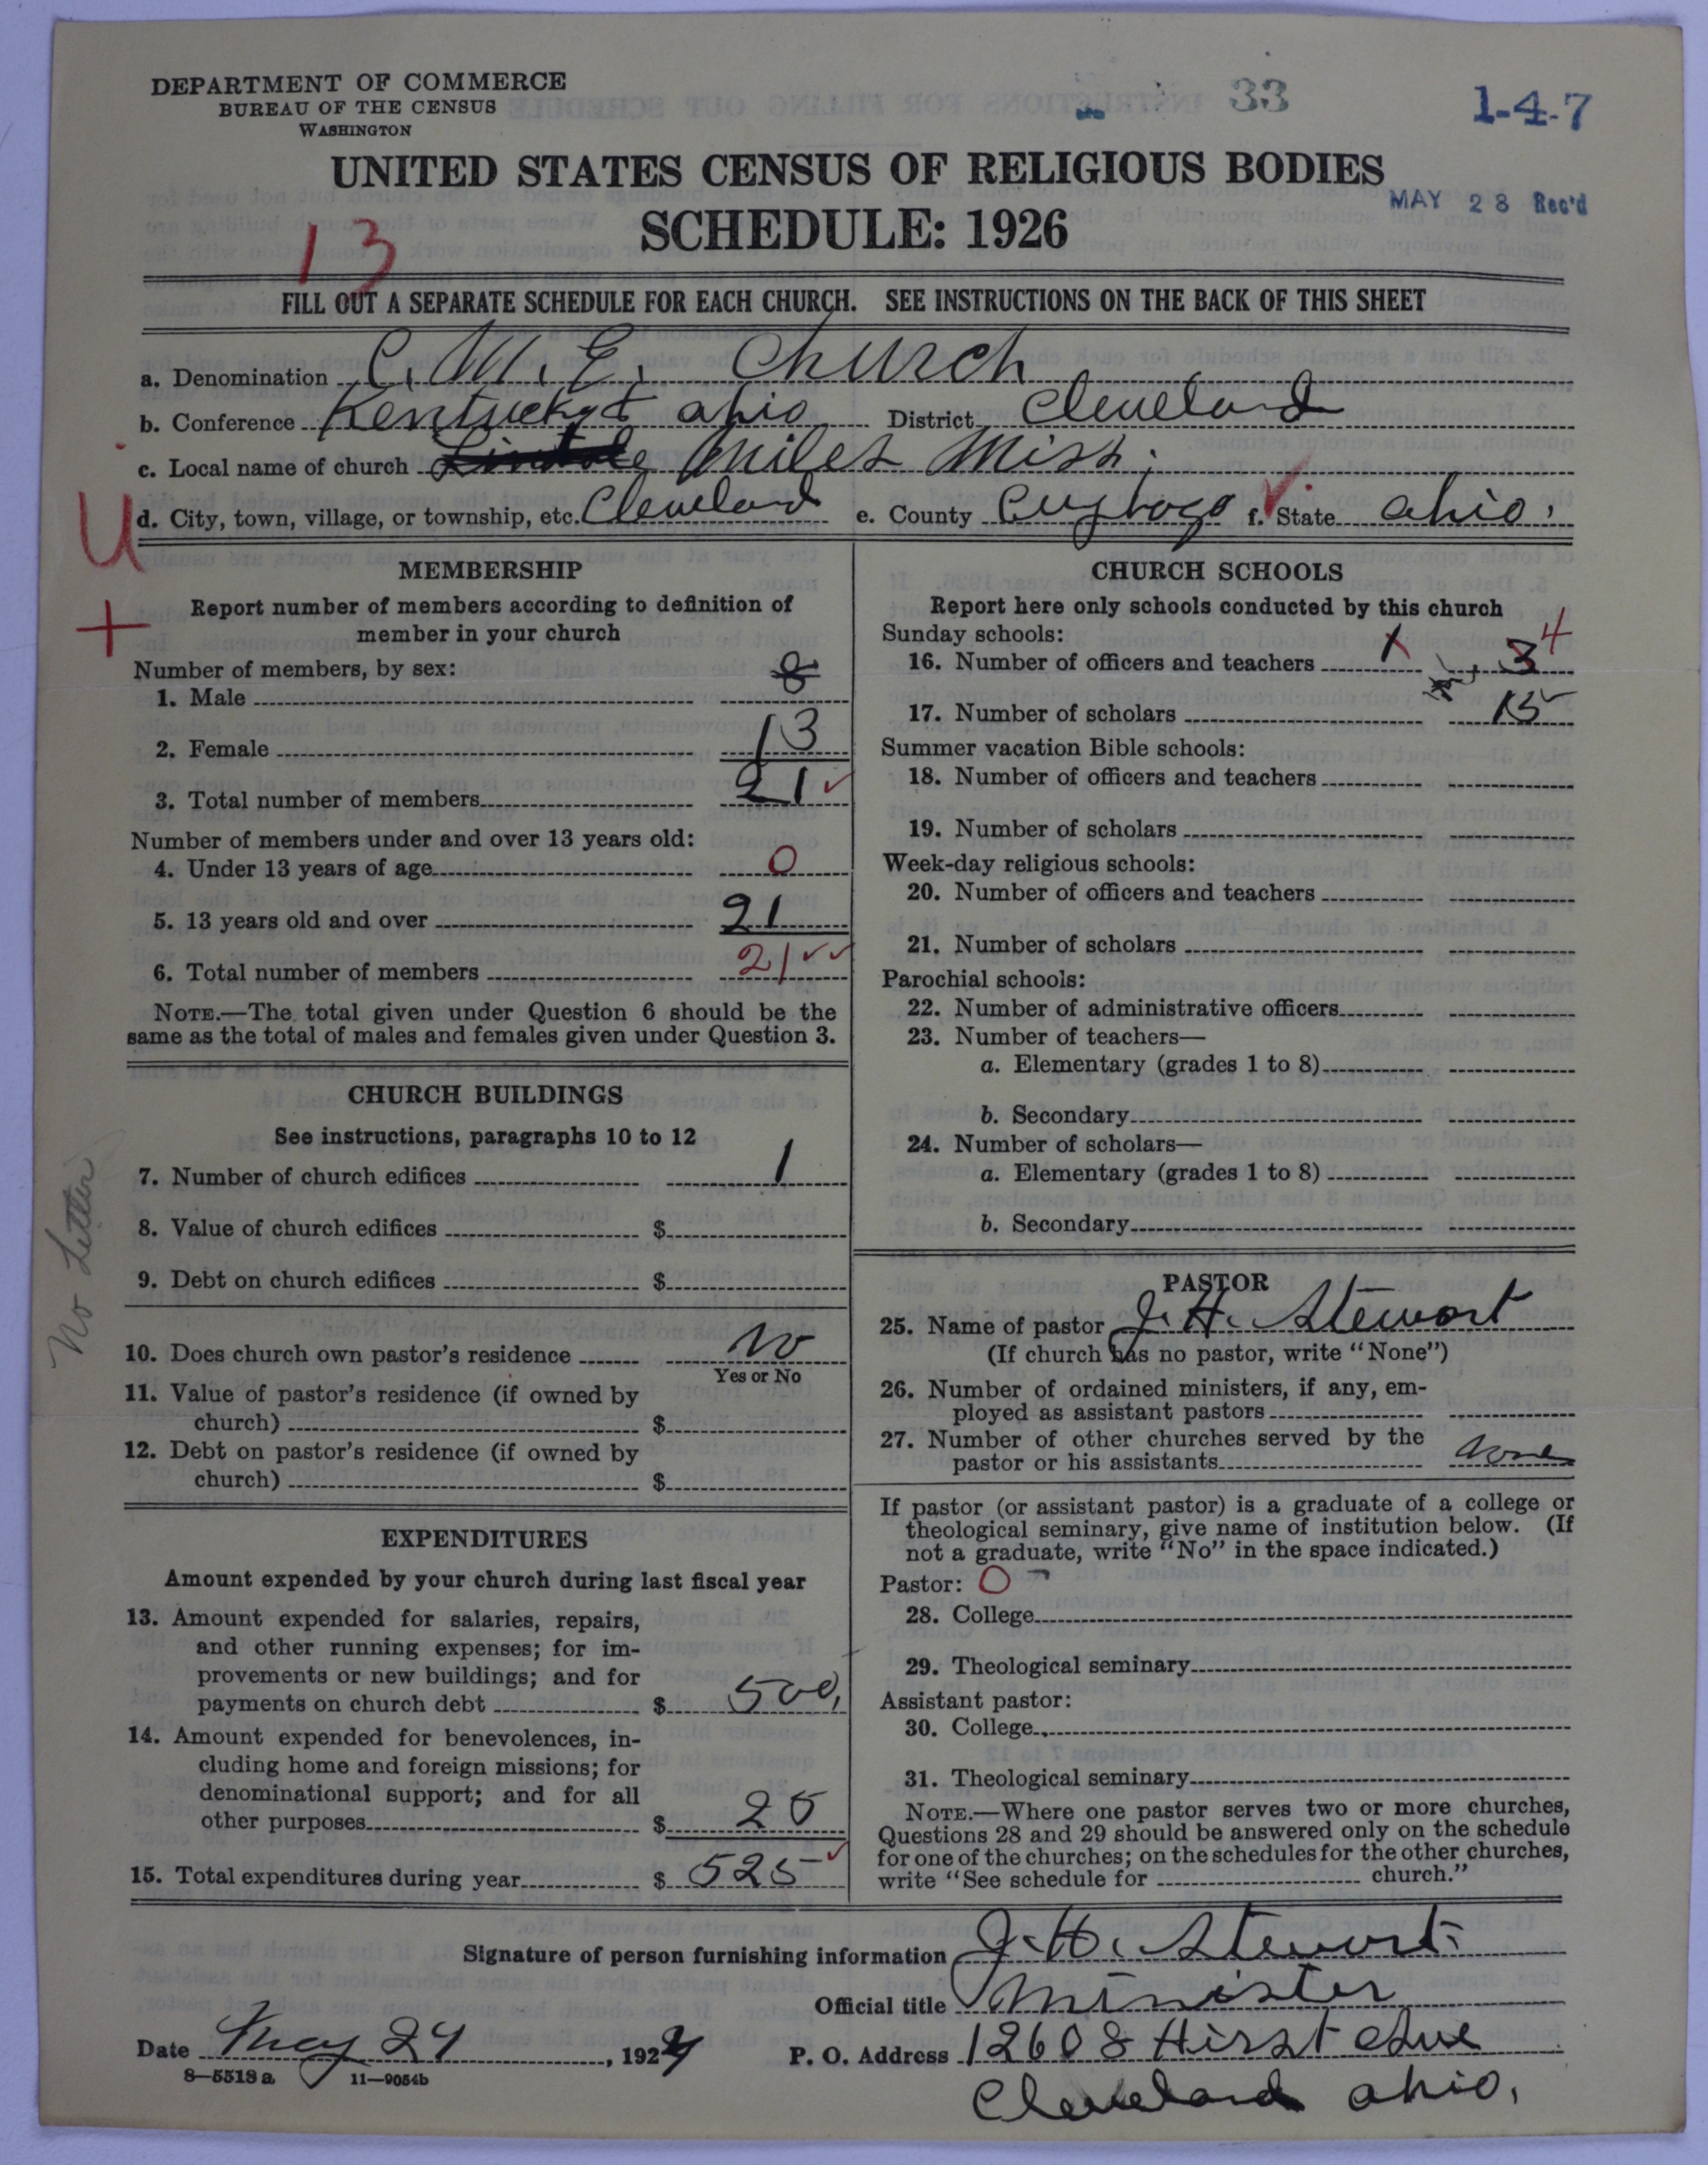 DEPARTMENT OF COMMERCE
BUREAU OF THE CENSUS
WASHINGTON
33
1-4-7
UNITED STATES CENSUS OF RELIGIOUS BODIES
MAY 28 Rec'd
SCHEDULE: 1926
13
FILL OUT A SEPARATE SCHEDULE FOR EACH CHURCH. SEE INSTRUCTIONS ON THE BACK OF THIS SHEET
a. Denomination C. M. E. Church
b. Conference Kentucky & ohio District Cleveland
c. Local name of church Miles Miss.
d. City, town, village, or township, etc. Cleveland e. County Cuyhogo f. State ohio.
U
+
MEMBERSHIP
Report number of members according to definition of
member in your church
Number of members, by sex:
1. Male 8
2. Female 13
3. Total number of members 21
Number of members under and over 13 years old:
4. Under 13 years of age 0
5. 13 years old and over 21
6. Total number of members 21
NOTE.—The total given under Question 6 should be the
same as the total of males and females given under Question 3.
CHURCH BUILDINGS
See instructions, paragraphs 10 to 12
7. Number of church edifices 1
8. Value of church edifices $
9. Debt on church edifices $
10. Does church own pastor's residence No
Yes or No
11. Value of pastor's residence (if owned by
church) $
12. Debt on pastor's residence (if owned by
church) $
No Letter
EXPENDITURES
Amount expended by your church during last fiscal year
13. Amount expended for salaries, repairs,
and other running expenses; for im-
provements or new buildings; and for
payments on church debt $ 500,
14. Amount expended for benevolences, in-
cluding home and foreign missions; for
denominational support; and for all
other purposes $ 25
15. Total expenditures during year $ 525
CHURCH SCHOOLS
Report here only schools conducted by this church
Sunday schools:
16. Number of officers and teachers 1 3 4
17. Number of scholars 15
Summer vacation Bible schools:
18. Number of officers and teachers
19. Number of scholars
Week-day religious schools:
20. Number of officers and teachers
21. Number of scholars
Parochial schools:
22. Number of administrative officers
23. Number of teachers—
a. Elementary (grades 1 to 8)
b. Secondary
24. Number of scholars—
a. Elementary (grades 1 to 8)
b. Secondary
PASTOR
25. Name of pastor J. H. Stewart
(If church has no pastor, write "None")
26. Number of ordained ministers, if any, em-
ployed as assistant pastors
27. Number of other churches served by the
pastor or his assistants None
If pastor (or assistant pastor) is a graduate of a college or
theological seminary, give name of institution below. (If
not a graduate, write "No" in the space indicated.)
Pastor: 0
28. College
29. Theological seminary
Assistant pastor:
30. College
31. Theological seminary
NOTE.—Where one pastor serves two or more churches,
Questions 28 and 29 should be answered only on the schedule
for one of the churches; on the schedules for the other churches,
write "See schedule for church."
Signature of person furnishing information J. H. Stewart
Official title Minister
Date May 24, 192
P. O. Address 12608 Hirst Ave
Cleveland ohio.
8—5518a 11—9054b